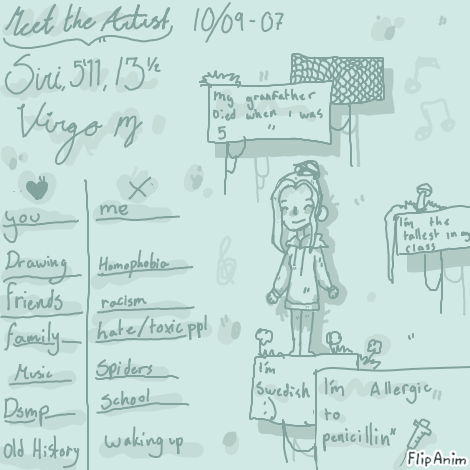 Meet the Artist 10/09-07
Siri, 5'11, 13½
Virgo ♍
you
Drawing
friends
family
Music
Dsmp
Old History
me
Homophobia
racism
hate/toxic ppl
Spiders
School
waking up
My granfather
Died when i was
5
I'm the
tallest in my
class
I'm
Swedish
:)
I'm Allergic
to
penicillin
FlipAnim